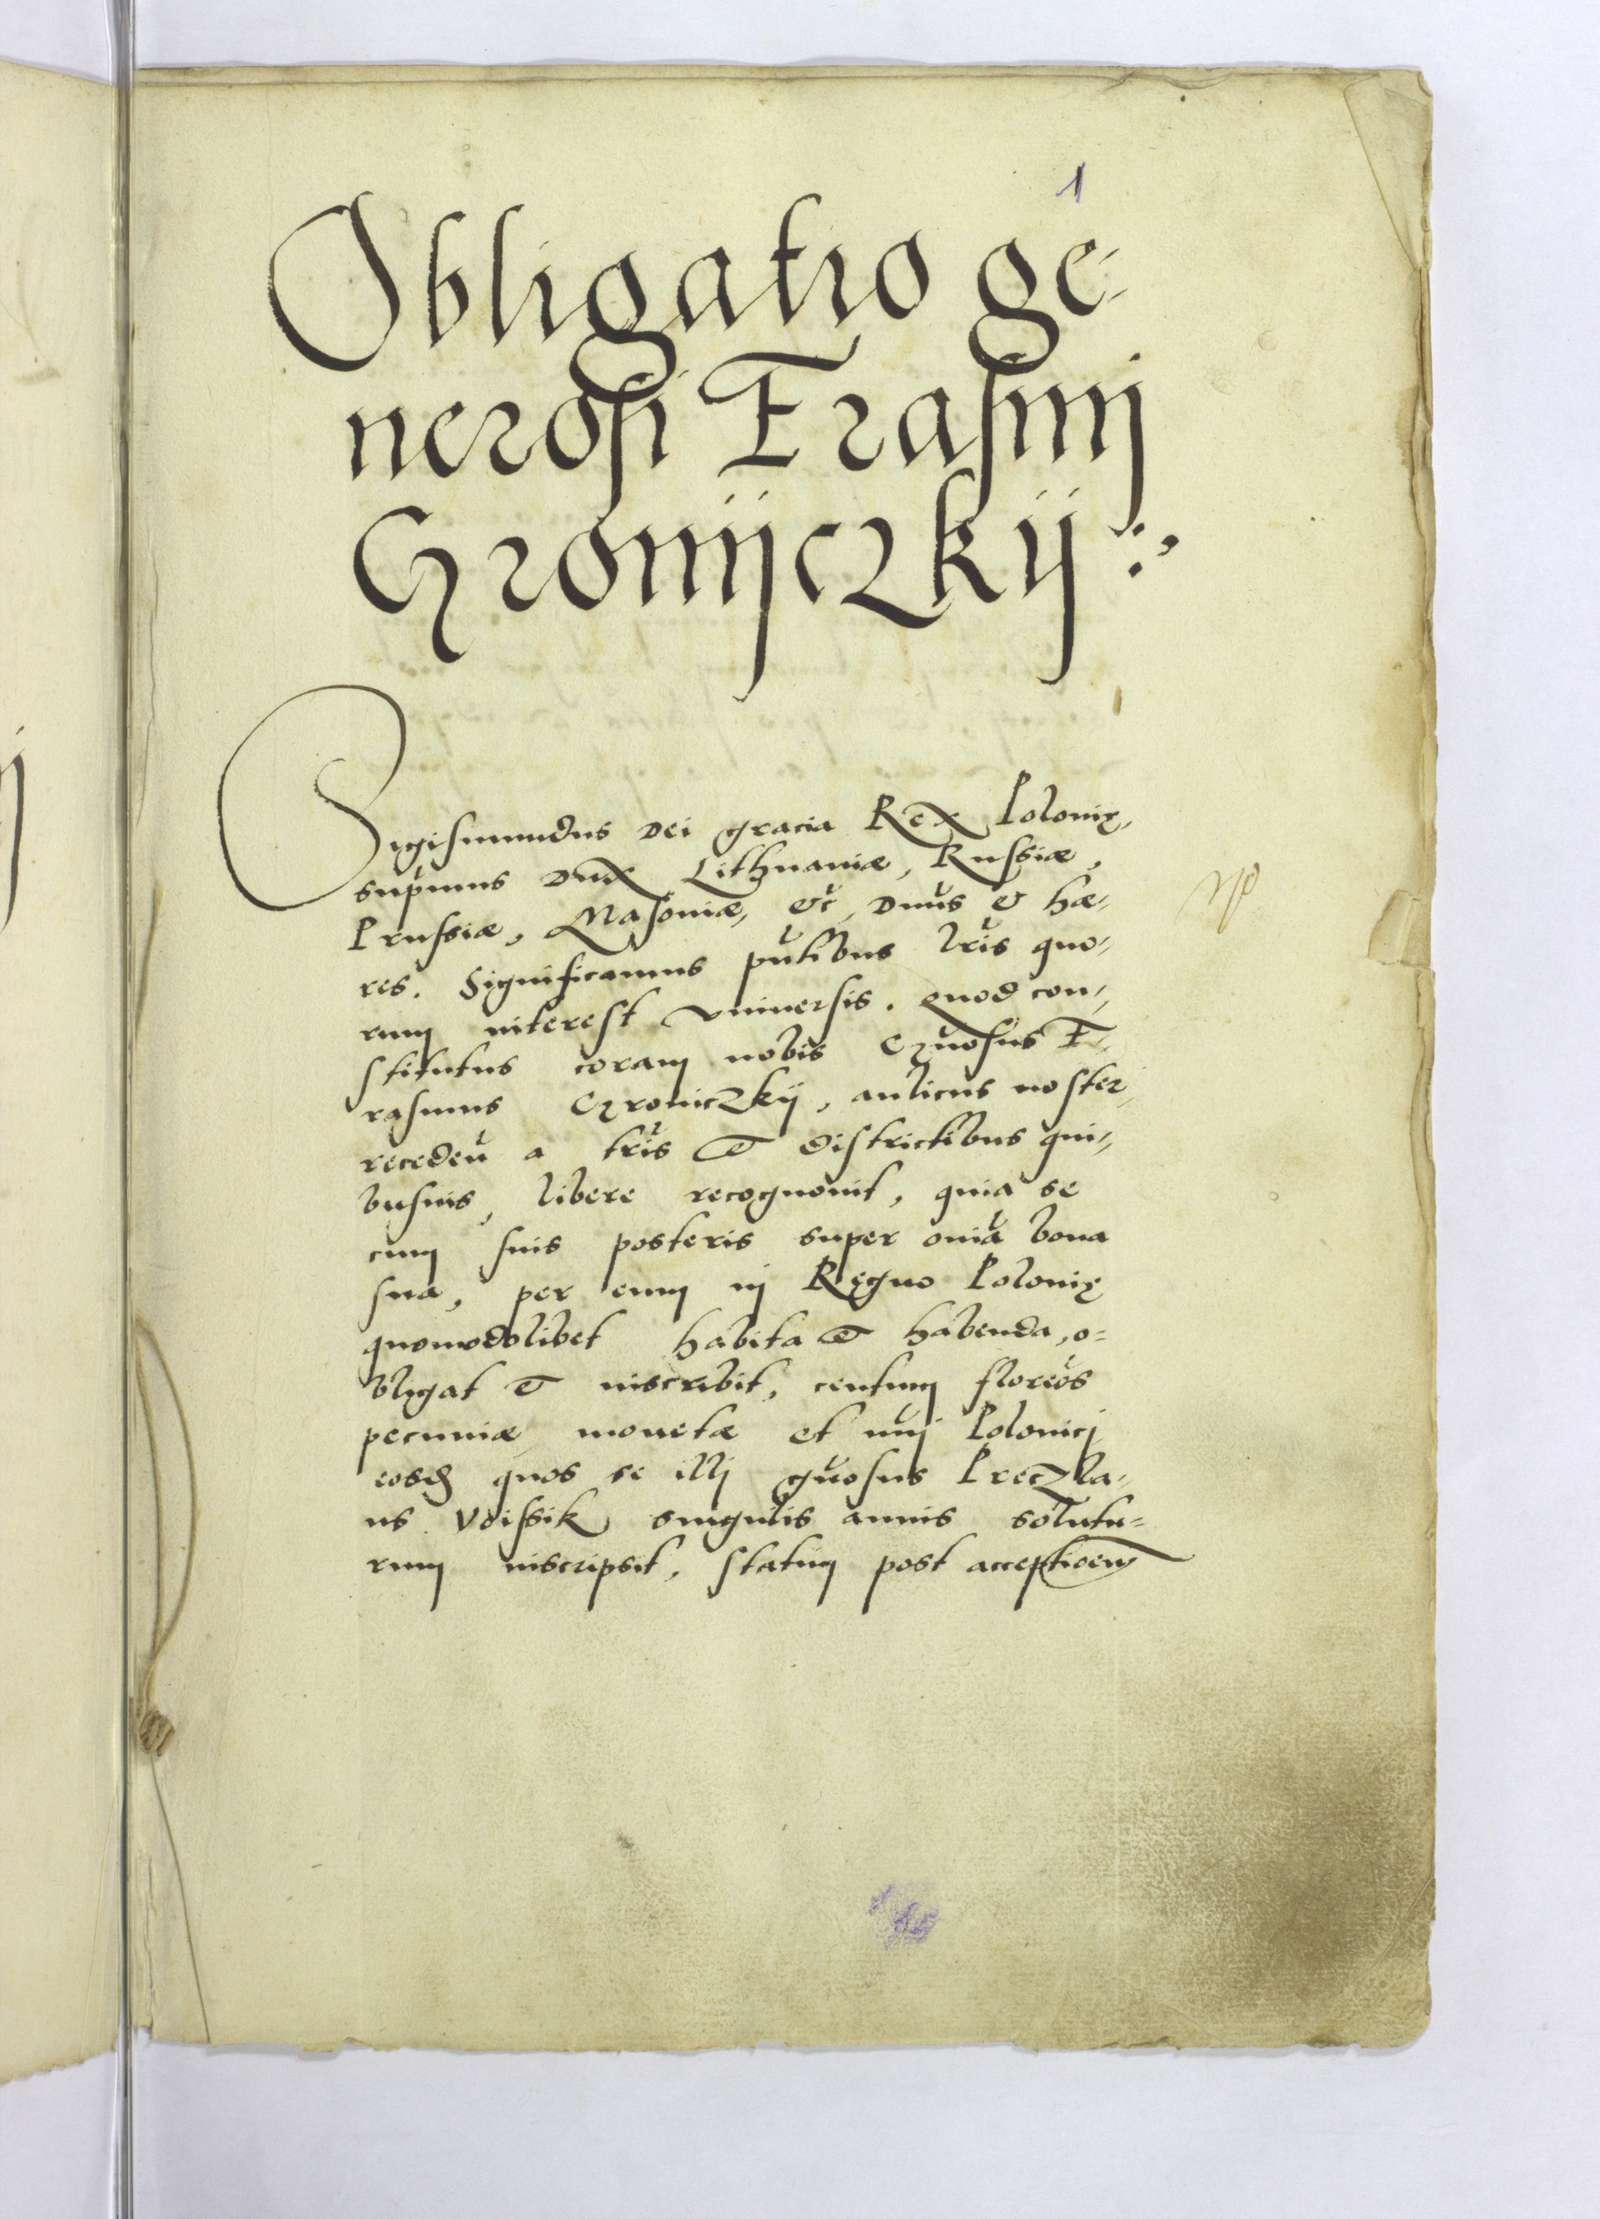 1
Obligatio ge-
nerosi Erasmi
Gronijczkij
Sigismundus Dei gracia Rex Polonię,
supmus Dux Lithuaniæ, Russiæ,
Prussiæ, Masoniæ, etc, Dnus & hæ-
res. Significamus pntibus lris quo-
rum interest vniuersis. Quod con-
stitutus coram nobis Gnosus E-
rasmus Groniczkij, aulicus noster,
receden a tris et districtibus qui-
busuis, libere recognouit, quia se
cum suis posteris super onia bona
sua, per eum in Regno Polonię
quomodolibet habita et habenda, o-
bligat et inscribit, centum florenos
pecuniæ monetæ et nuj Polonicj
eosd quos se illj gnosus Preczla-
us Vdissik singulis annis solutu-
rum inscripsit, statim post accepticem